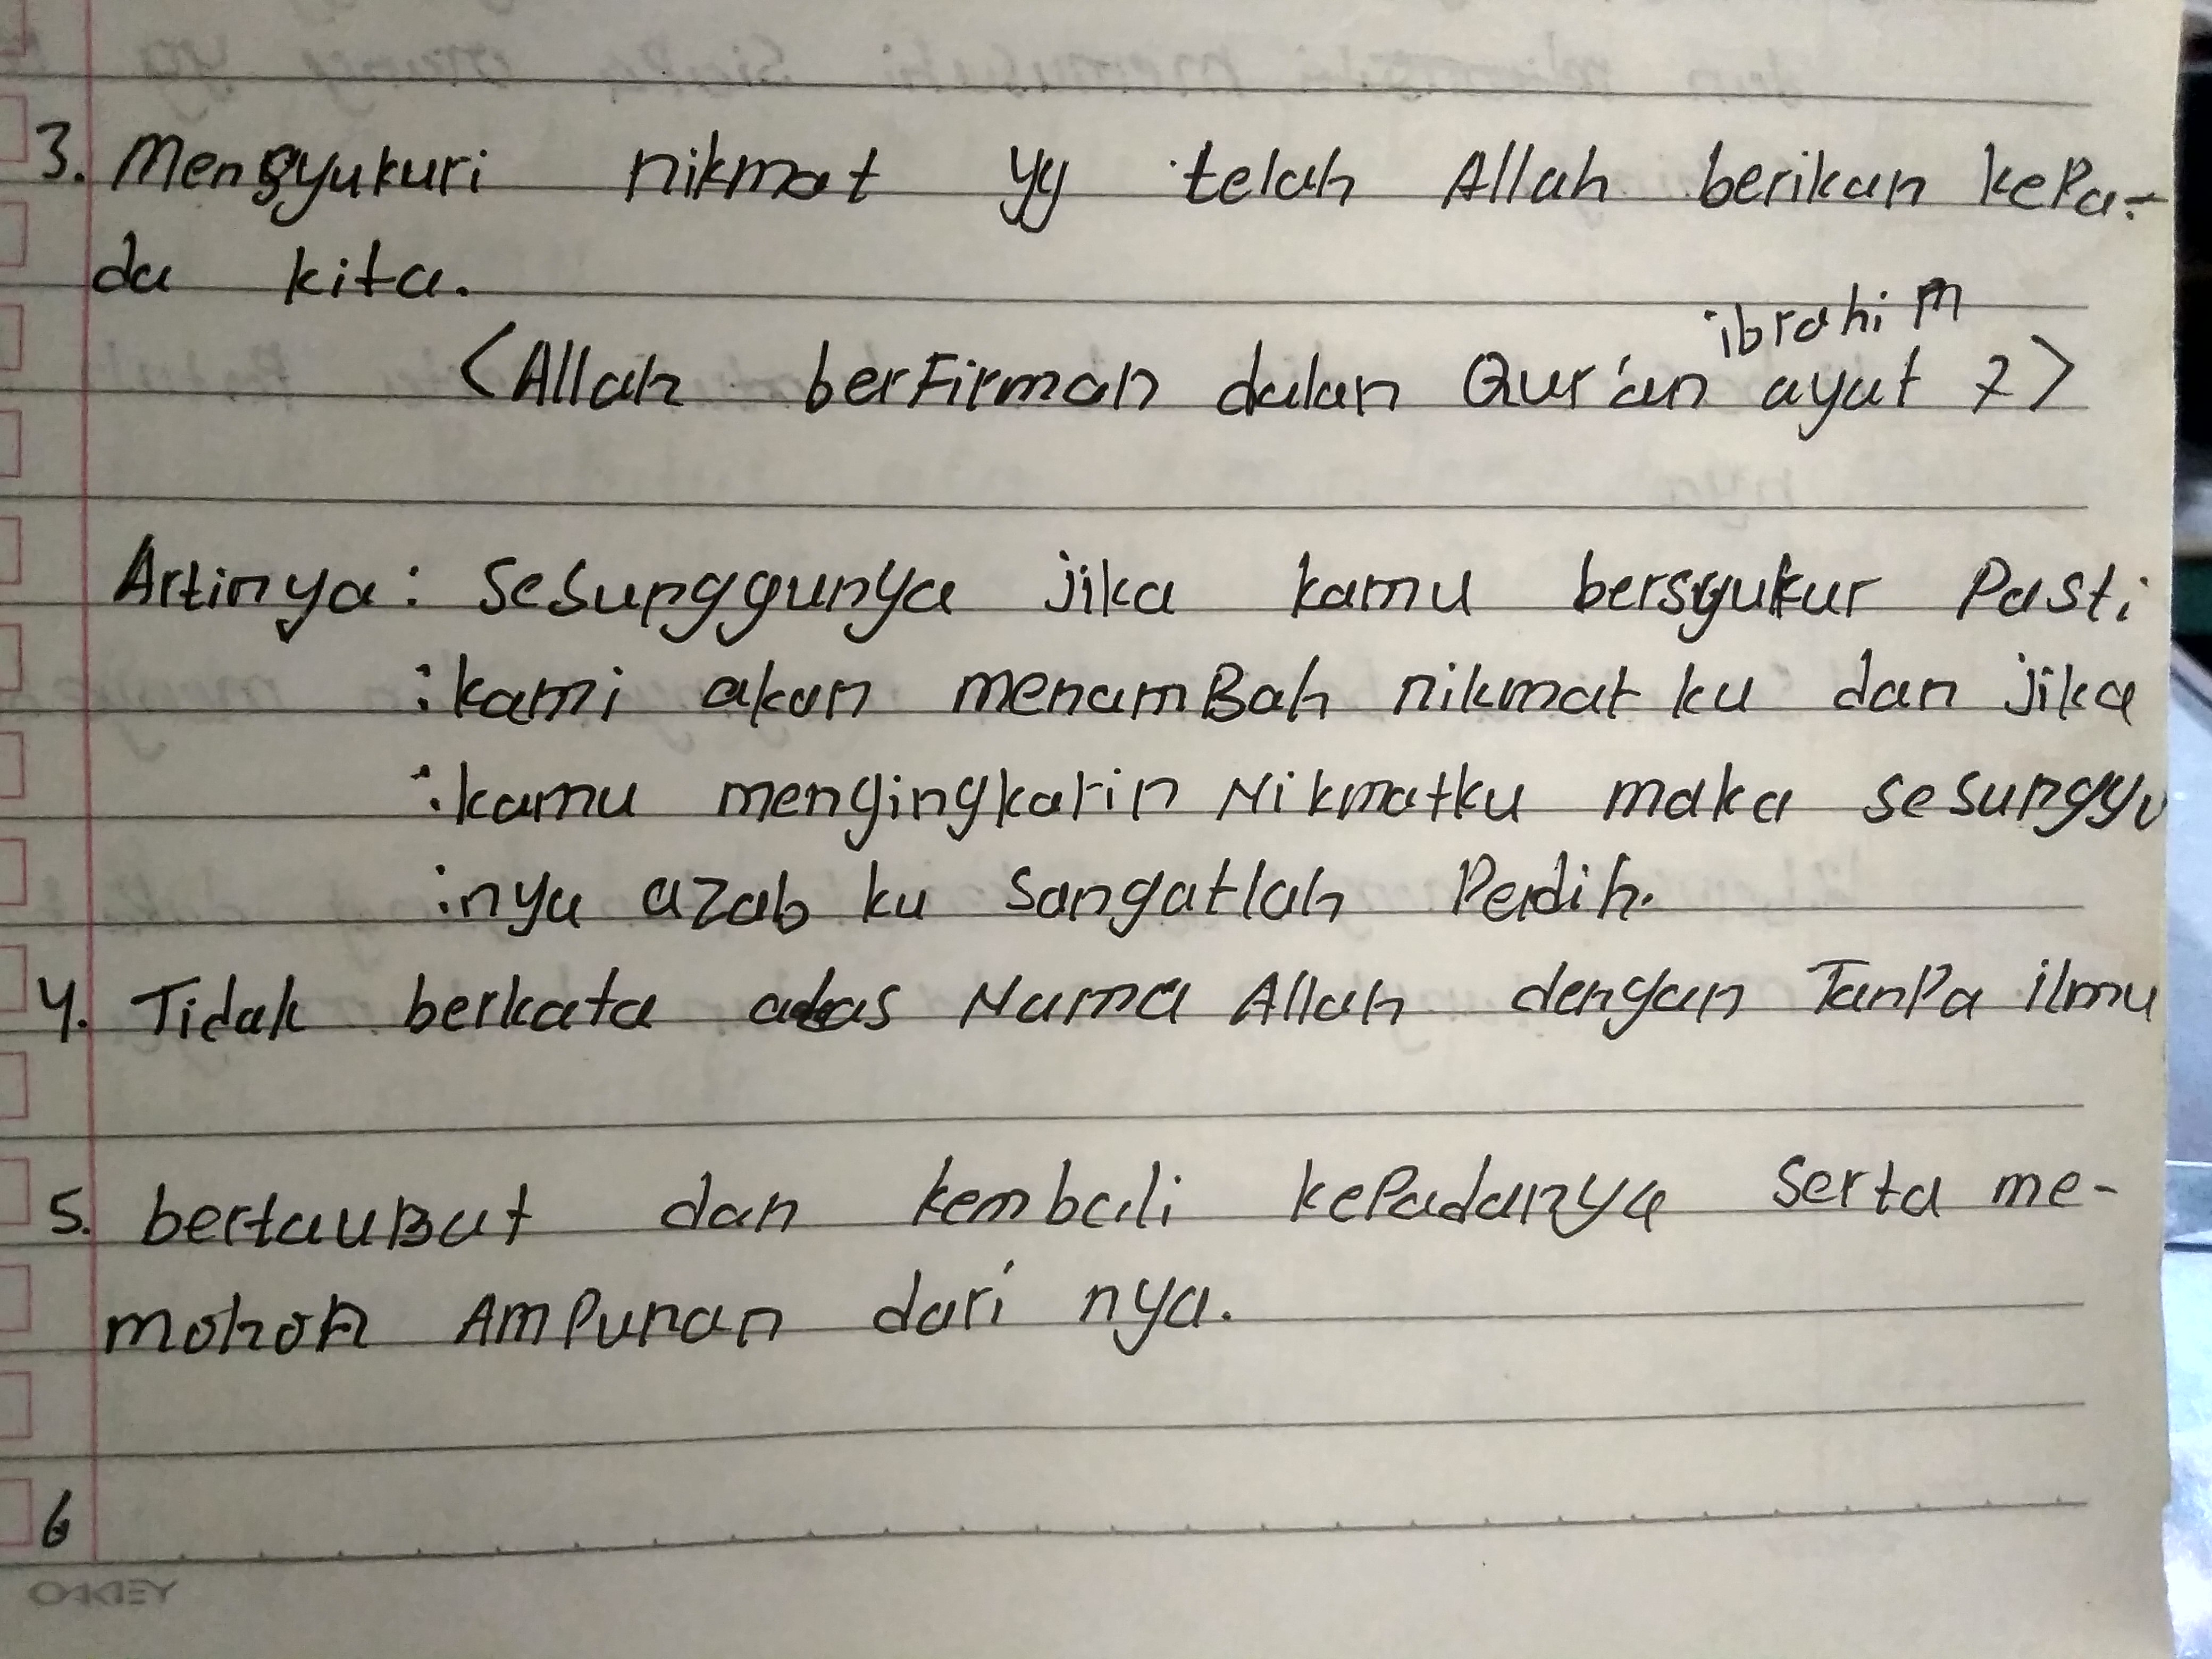 3. Mengsyukuri nikmat yg telah Allah berikan kepa-
da kita.
ibrahim
<Allah berfirman dalan Qur'an ayat 7>
Artinya: Sesunggunya jika kamu bersyukur Pasti
:kami akan menamBah nikmat ku dan jika
:kamu mengingkarin Nikmatku maka sesunggu
:nya azab ku sangatlah Pedih.
4. Tidak berkata atas Nama Allah dengan TanPa ilmu
5. bertauBat dan kembali kepadanya serta me-
mohon AmPunan dari nya.
6
OAKLEY